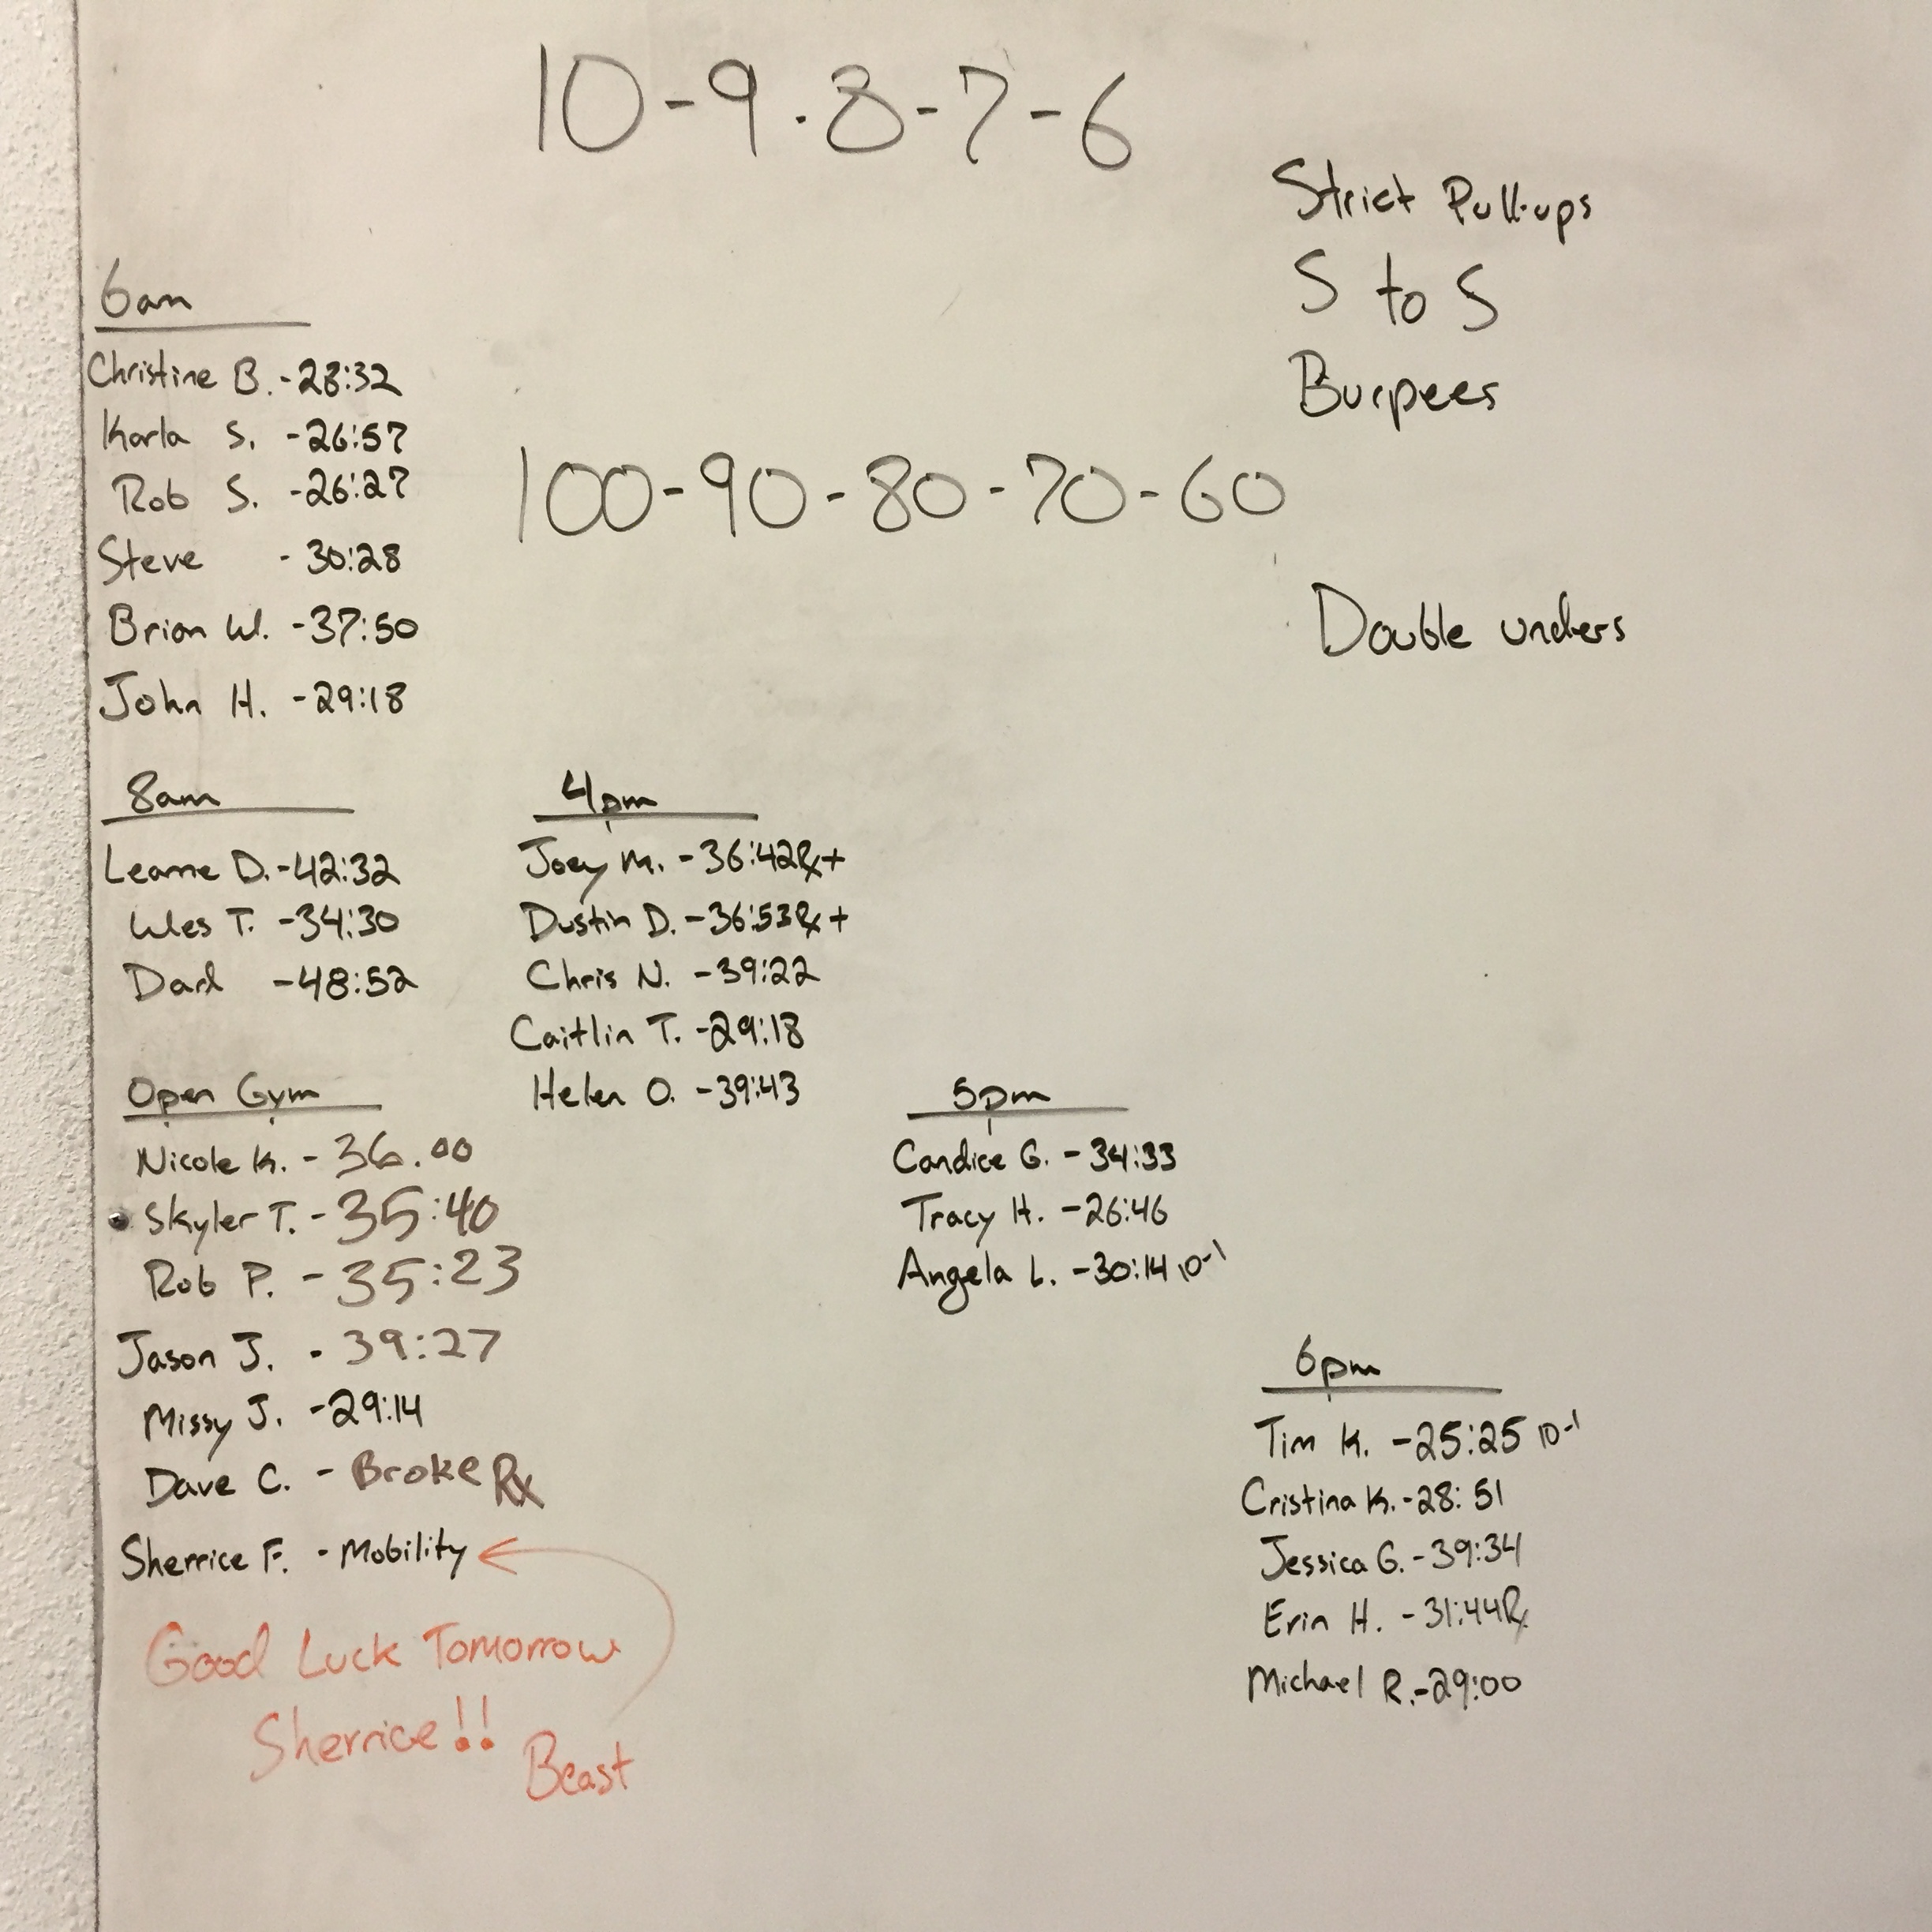 10-9-8-7-6
Strict Pull-ups
S to S
Burpees
100-90-80-70-60
Double unders
6am
Christine B. -28:32
Karla S. -26:57
Rob S. -26:27
Steve - 30:28
Brian W. -37:50
John H. -29:18
8am
Leanne D. -42:32
Wes T. -34:30
Darl -48:52
Open Gym
Nicole K. - 36.00
Skyler T. - 35:40
Rob P. - 35:23
Jason J. - 39:27
Missy J. -29:14
Dave C. - Broke Rx
Sherrice F. - Mobility
Good Luck Tomorrow
Sherrice!!
Beast
4pm
Joey M. -36:42Rx+
Dustin D. -36:53Rx+
Chris N. -39:22
Caitlin T. -29:18
Helen O. -39:43
5pm
Candice G. -34:33
Tracy H. -26:46
Angela L. -30:14 10-1
6pm
Tim K. -25:25 10-1
Cristina K. -28:51
Jessica G. -39:34
Erin H. -31:44Rx
Michael R. -29:00